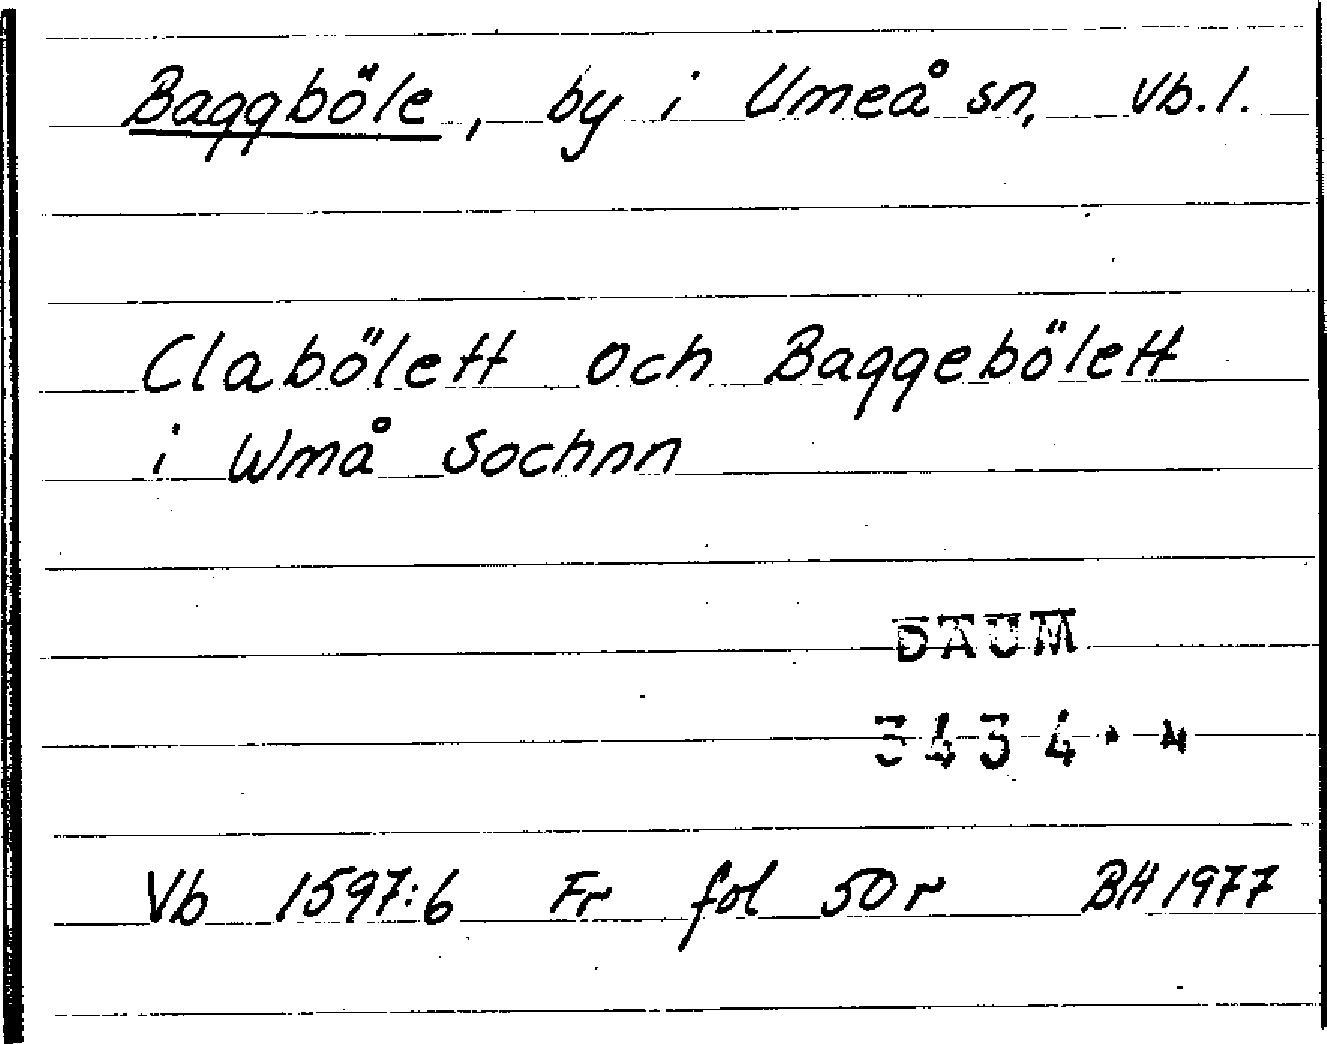 Baggböle, by i Umeå sn, Vb.l.
Clabölett och Baggebölett
i Wmå Sochnn
DAUM
3434.4
Vb 1597:6 Fr fol 50r BH 1977